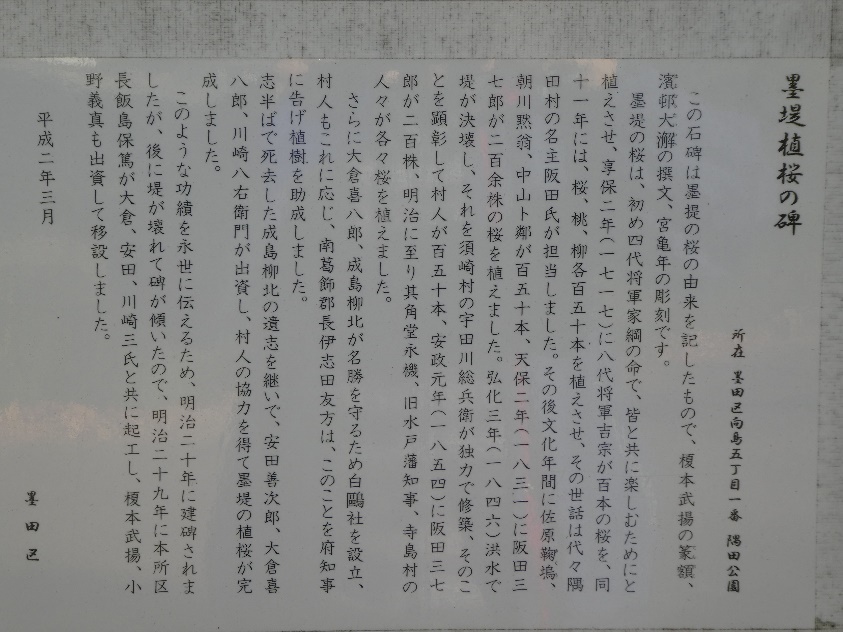 墨堤植桜の碑
所在 墨田区向島五丁目一番 隅田公園
この石碑は墨提の桜の由来を記したもので、榎本武揚の篆額、
濱邨大澥の撰文、宮亀年の彫刻です。
墨堤の桜は、初め四代将軍家綱の命で、皆と共に楽しむためにと
植えさせ、享保二年(一七一七)に八代将軍吉宗が百本の桜を、同
十一年には、桜、桃、柳各百五十本を植えさせ、その世話は代々隅
田村の名主阪田氏が担当しました。その後文化年間に佐原鞠塢、
朝川黙翁、中山卜鄰が百五十本、天保二年(一八三一)に阪田三
七郎が二百余株の桜を植えました。弘化三年(一八四六)洪水で
堤が決壊し、それを須崎村の宇田川総兵衛が独力で修築、そのこ
とを顕彰して村人が百五十本、安政元年(一八五四)に阪田三七
郎が二百株、明治に至り其角堂永機、旧水戸藩知事、寺島村の
人々が各々桜を植えました。
さらに大倉喜八郎、成島柳北が名勝を守るため白鷗社を設立、
村人もこれに応じ、南葛飾郡長伊志田友方は、このことを府知事
に告げ植樹を助成しました。
志半ばで死去した成島柳北の遺志を継いで、安田善次郎、大倉喜
八郎、川崎八右衛門が出資し、村人の協力を得て墨堤の植桜が完
成しました。
このような功績を永世に伝えるため、明治二十年に建碑されま
したが、後に堤が壊れて碑が傾いたので、明治二十九年に本所区
長飯島保篤が大倉、安田、川崎三氏と共に起工し、榎本武揚、小
野義真も出資して移設しました。
平成二年三月
墨田区